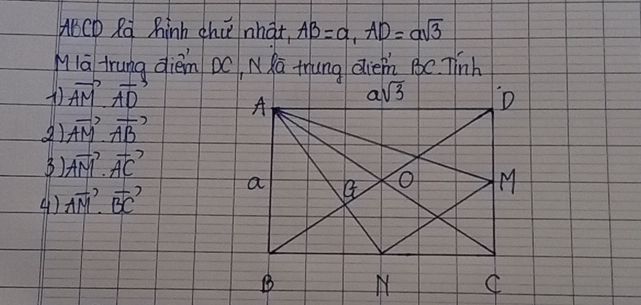 ABCD là hình chữ nhật, AB = a, AD = a√3
M là trung điểm DC, N là trung điểm BC. Tính
1) AM⃗ . AD⃗
2) AM⃗ . AB⃗
3) AM⃗ . AC⃗
4) AM⃗ . BC⃗
a√3
A D
a G O M
B N C